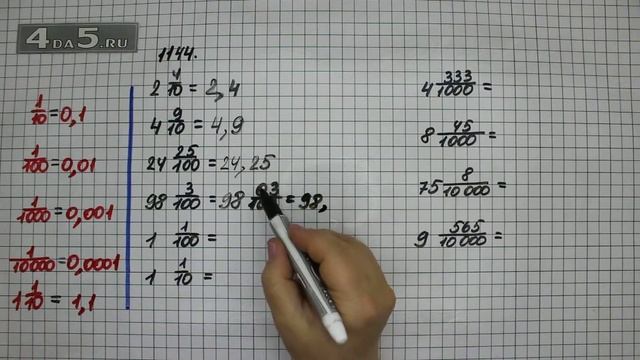 4DA5.RU
1144.
1/10 = 0,1
1/100 = 0,01
1/1000 = 0,001
1/10000 = 0,0001
1 1/10 = 1,1
2 4/10 = 2,4
4 9/10 = 4,9
24 25/100 = 24,25
98 3/100 = 98 03/100 = 98,
1 1/100 =
1 1/10 =
4 333/1000 =
8 45/1000 =
75 8/10000 =
9 565/10000 =